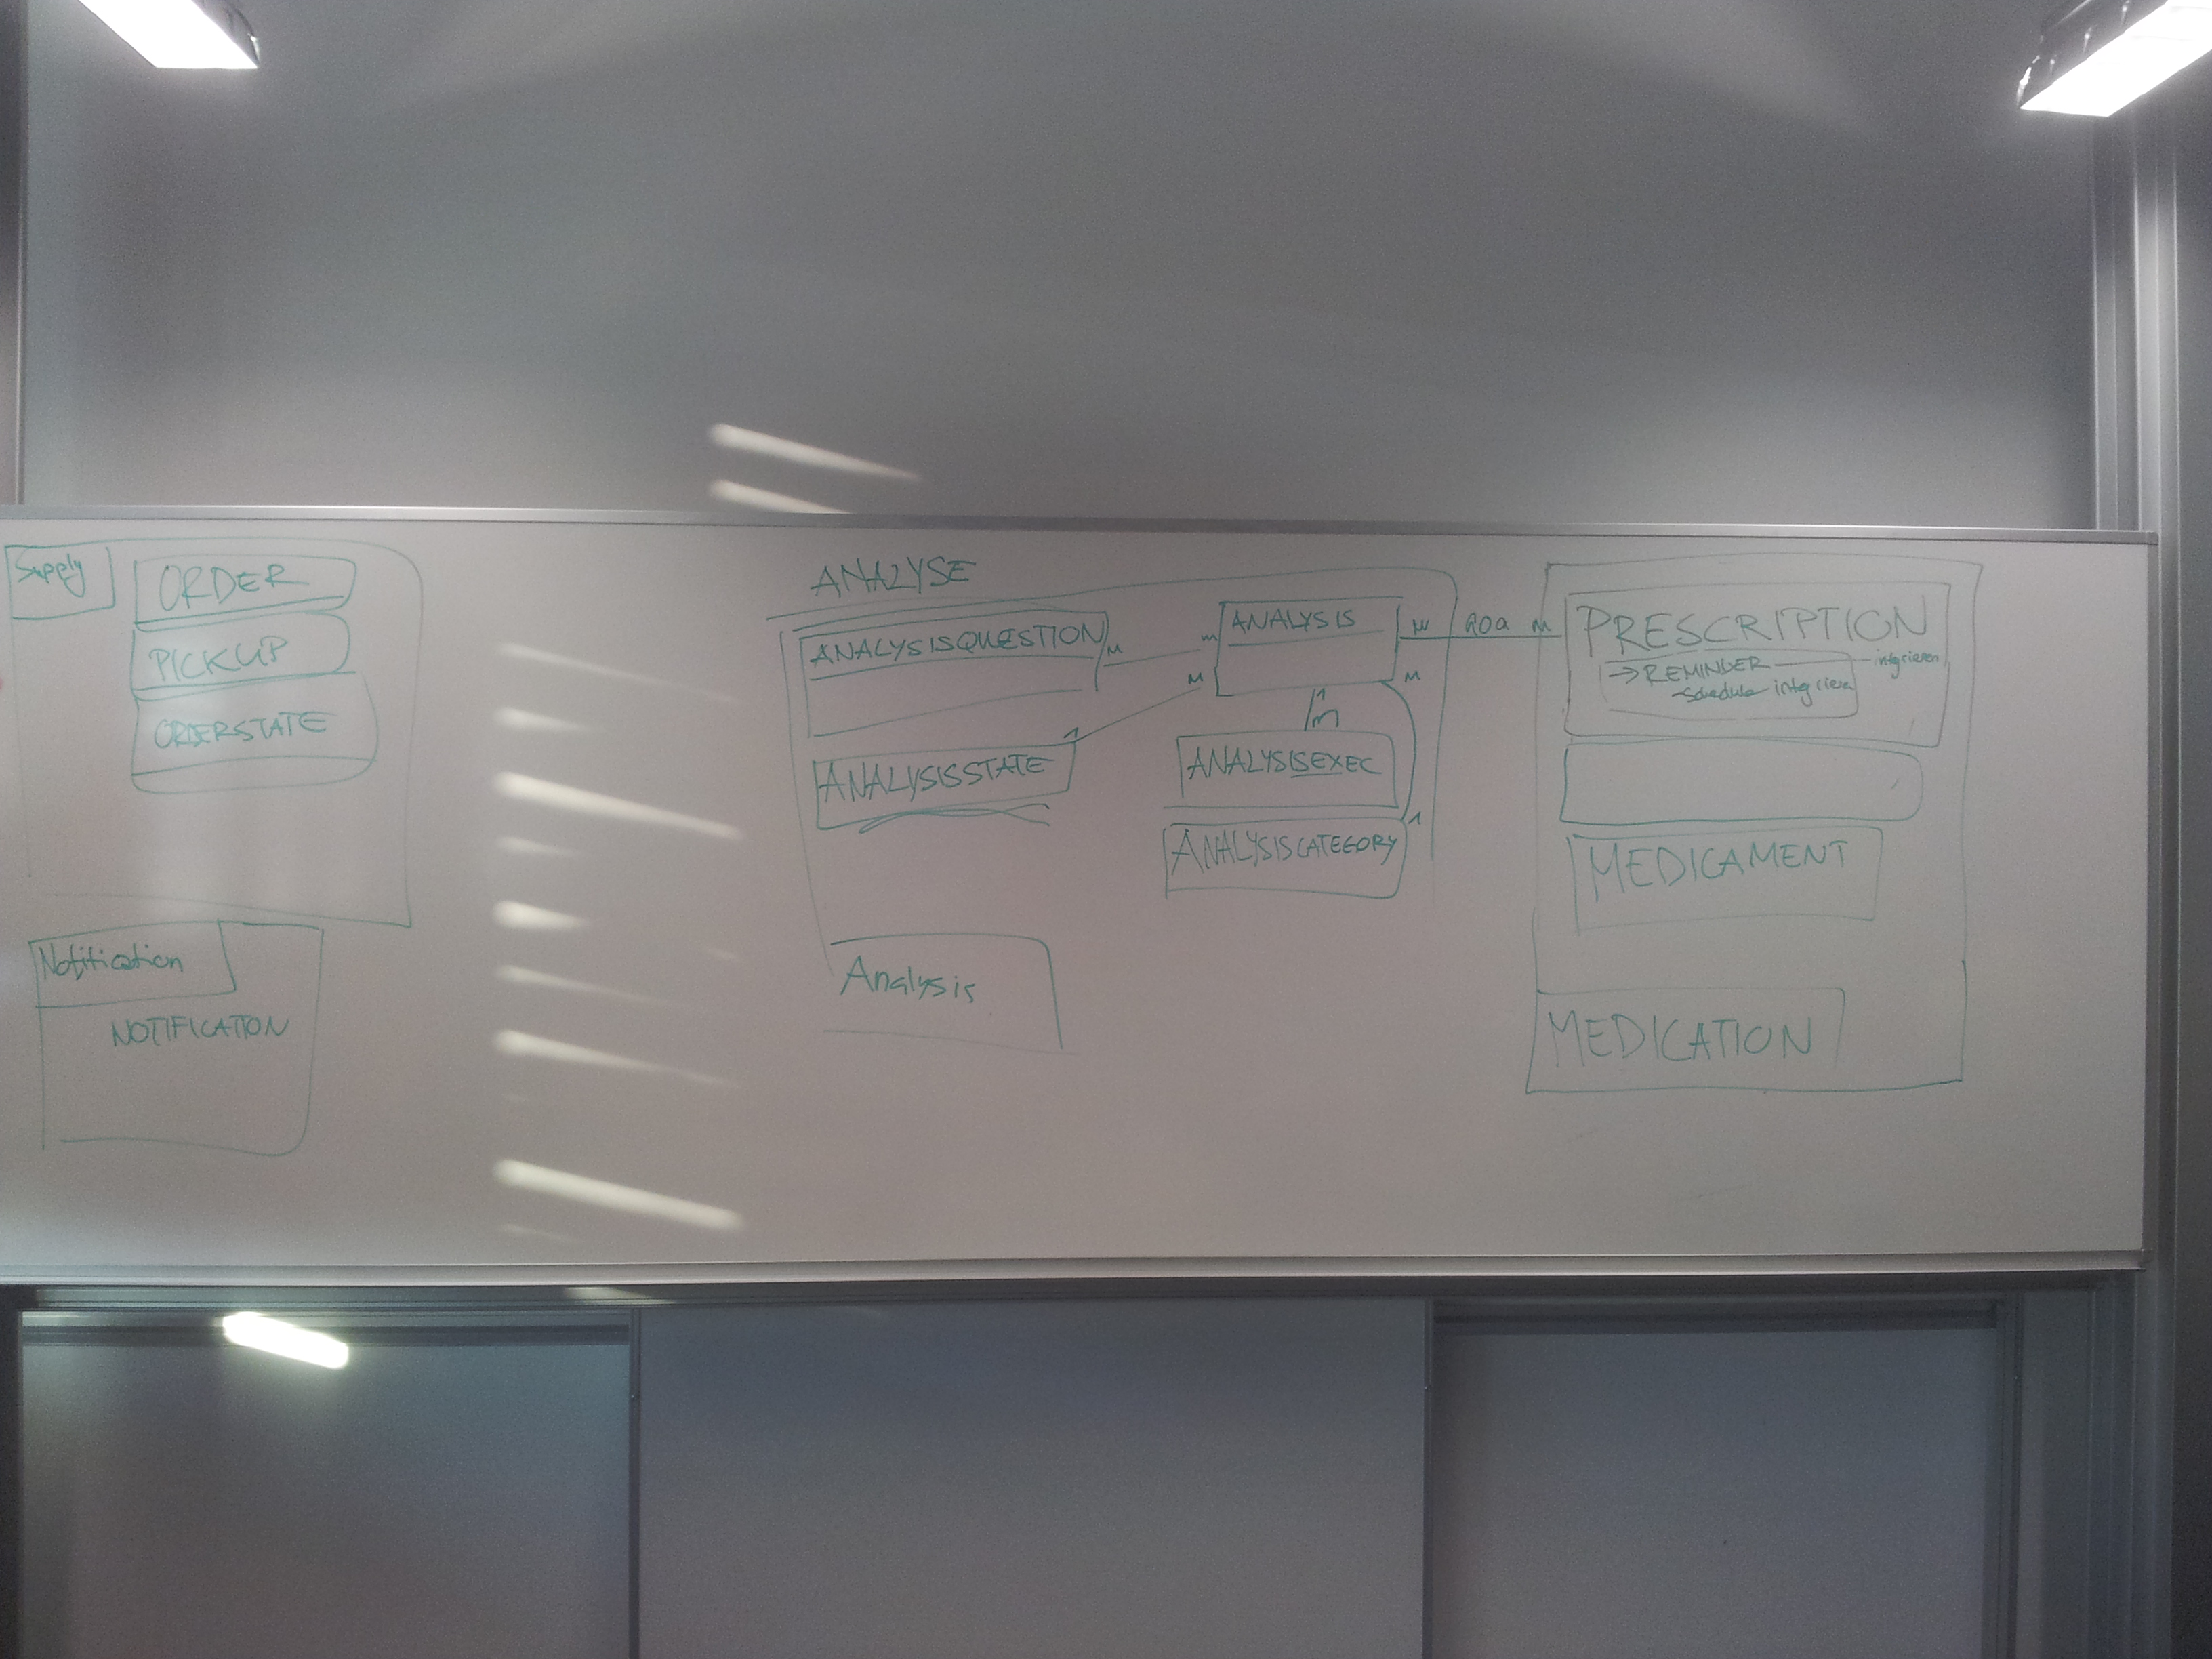 Supply
ORDER
PICKUP
ORDERSTATE
Notification
NOTIFICATION
ANALYSE
ANALYSISQUESTION
M
m
ANALYSIS
M
M
M
ANALYSISSTATE
1
1
m
ANALYSISEXEC
ANALYSISCATEGORY
1
Analysis
M
PRESCRIPTION
→ REMINDER — integrieren
- Schedule integrieren
MEDICAMENT
MEDICATION